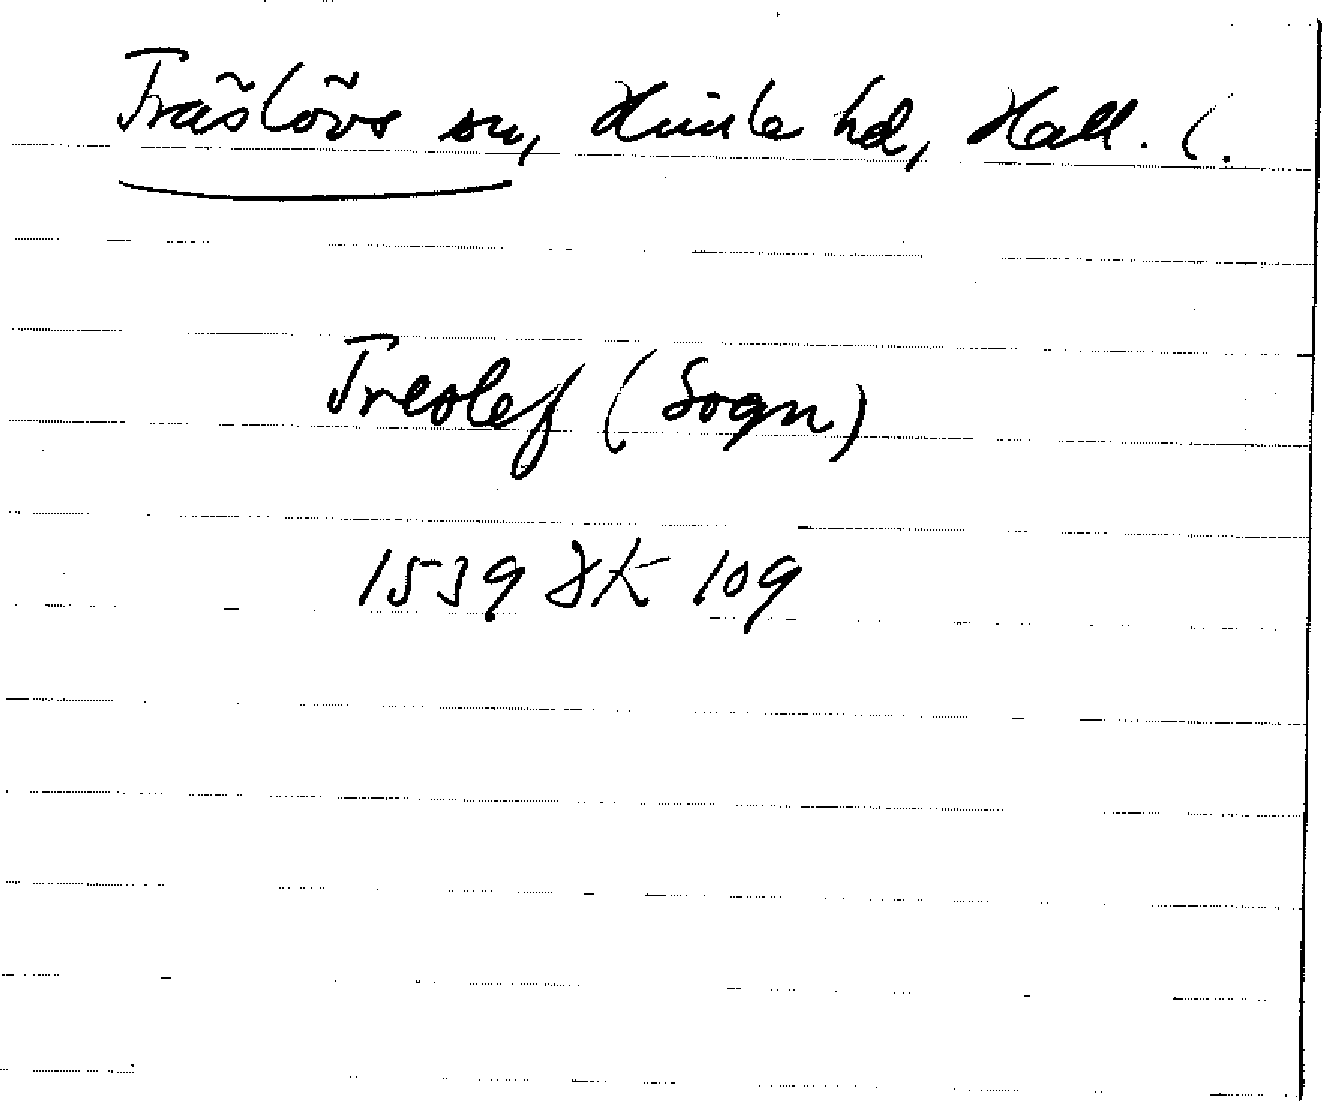 Träslövs sn, Himle hd, Hall. l.
Treslef (Sogn)
1539 JK 109